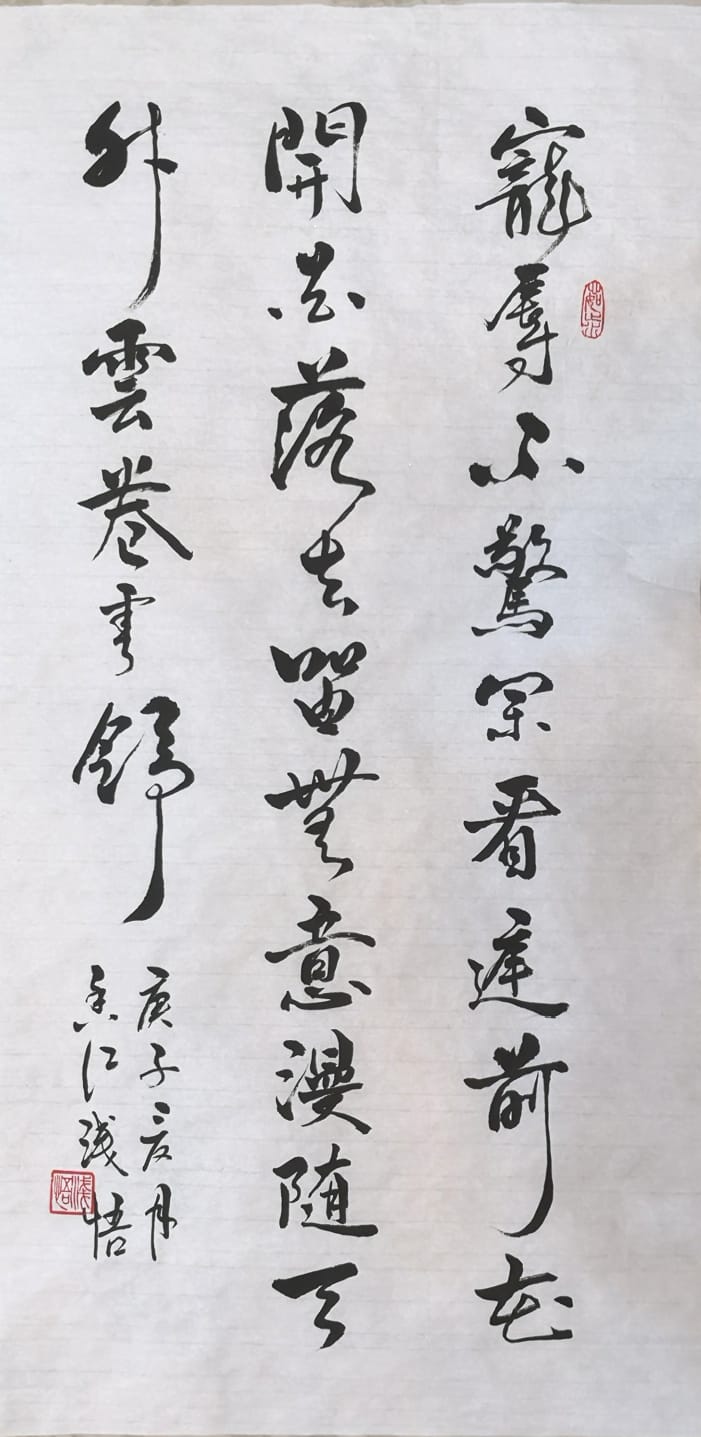 寵辱不驚閑看庭前花
開花落去留無意漫随天
外雲卷雲舒
庚子夏月
香江浅悟
浅悟